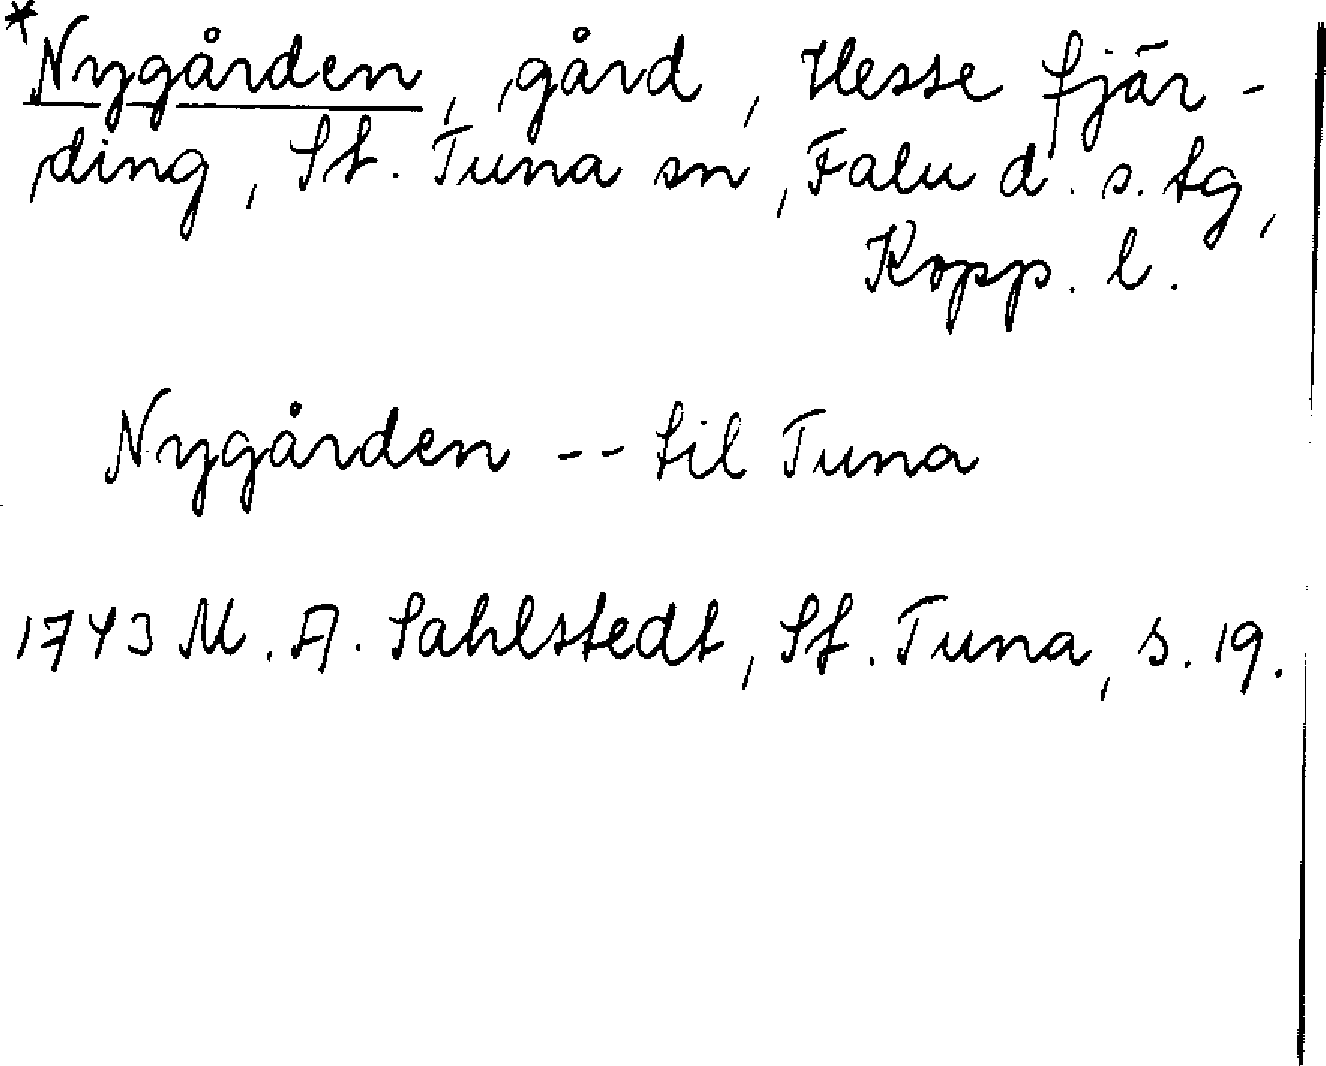 *Nygården, gård, Hesse fjär-
ding, St. Tuna sn, Falu d. s. tg,
Kopp. l.
Nygården -- til Tuna
1743 M. A. Sahlstedt, St. Tuna, s. 19.